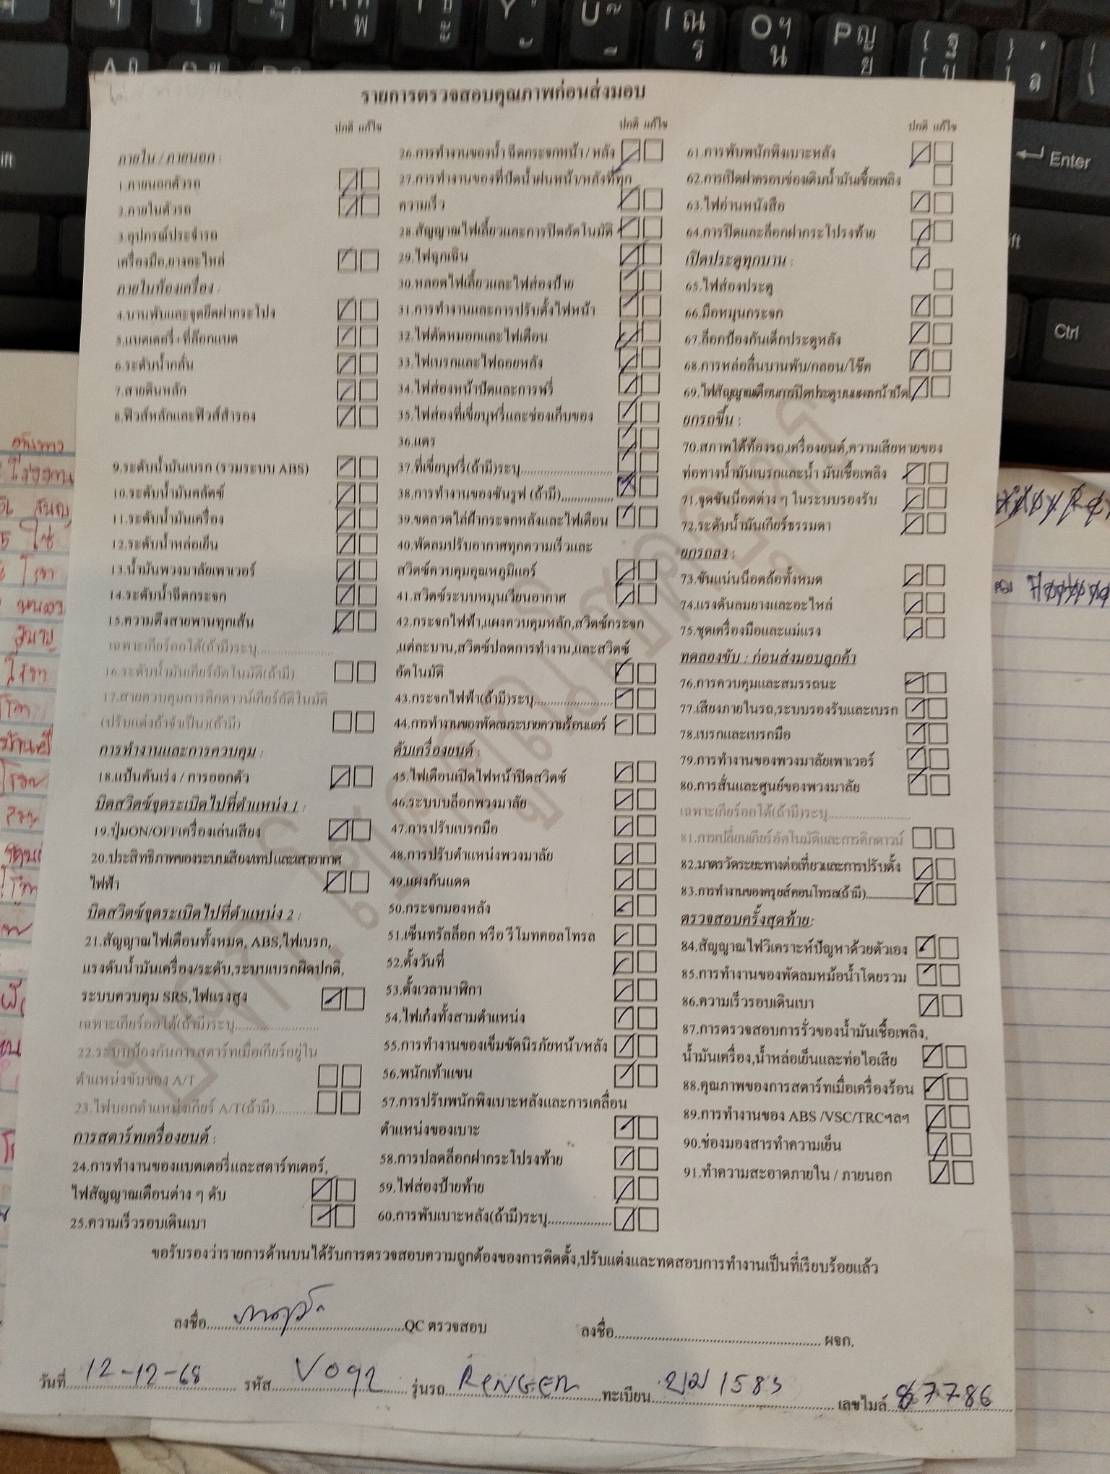 รายการตรวจสอบคุณภาพก่อนส่งมอบ
ปกติ แก้ไข
ภายใน / ภายนอก :
1.ภายนอกตัวรถ
2.ภายในตัวรถ
3.อุปกรณ์ประจำรถ
เครื่องมือ,ยางอะไหล่
ภายในห้องเครื่อง :
4.บานพับและจุดยึดฝากระโปง
5.แบตเตอรี่ + ที่ล๊อกแบต
6.ระดับน้ำกลั่น
7.สายดินหลัก
8.ฟิวส์หลักและฟิวส์สำรอง
9.ระดับน้ำมันเบรก (รวมระบบ ABS)
10.ระดับน้ำมันคลัตช์
11.ระดับน้ำมันเครื่อง
12.ระดับน้ำหล่อเย็น
13.น้ำมันพวงมาลัยเพาเวอร์
14.ระดับน้ำฉีดกระจก
15.ความตึงสายพานทุกเส้น
เฉพาะเกียร์ออโต้(ถ้ามี)ระบุ
16.ระดับน้ำมันเกียร์อัตโนมัติ(ถ้ามี)
17.สายควบคุมการคิกดาวน์เกียร์อัติโนมัติ
(ปรับแต่งถ้าจำเป็น)(ถ้ามี)
การทำงานและการควบคุม :
18.แป้นคันเร่ง / การออกตัว
บิดสวิตซ์จุดระเบิดไปที่ตำแหน่ง 1 :
19.ปุ่มON/OFFเครื่องเล่นเสียง
20.ประสิทธิภาพของระบบเสียง/เทปและเสาอากาศ
ไฟฟ้า
บิดสวิตซ์จุดระเบิดไปที่ตำแหน่ง 2 :
21.สัญญาณไฟเตือนทั้งหมด, ABS,ไฟเบรก,
แรงดันน้ำมันเครื่อง/ระดับ,ระบบเบรกผิดปกติ,
ระบบควบคุม SRS,ไฟแรงสูง
เฉพาะเกียร์ออโต้(ถ้ามี)ระบุ
22.ระบบป้องกันการสตาร์ทเมื่อเกียร์อยู่ใน
ตำแหน่งขับของ A/T
23.ไฟบอกตำแหน่งเกียร์ A/T(ถ้ามี)
การสตาร์ทเครื่องยนต์ :
24.การทำงานของแบตเตอรี่และสตาร์ทเตอร์,
ไฟสัญญาณเตือนต่าง ๆ ดับ
25.ความเร็วรอบเดินเบา
ปกติ แก้ไข
26.การทำงานของน้ำ ฉีดกระจกหน้า / หลัง
27.การทำงานของที่ปัดน้ำฝนหน้า/หลังที่ทุก
ความเร็ว
28.สัญญาณไฟเลี้ยวและการปิดอัตโนมัติ
29.ไฟฉุกเฉิน
30.หลอดไฟเลี้ยวและไฟส่องป้าย
31.การทำงานและการปรับตั้งไฟหน้า
32.ไฟตัดหมอกและไฟเตือน
33.ไฟเบรกและไฟถอยหลัง
34.ไฟส่องหน้าปัดและการหรี่
35.ไฟส่องที่เขี่ยบุหรี่และช่องเก็บของ
36.แตร
37.ที่เขี่ยบุหรี่(ถ้ามี)ระบุ
38.การทำงานของซันรูฟ (ถ้ามี)
39.ขดลวดไล่ฝ้ากระจกหลังและไฟเตือน
40.พัดลมปรับอากาศทุกความเร็วและ
สวิตช์ควบคุมอุณหภูมิแอร์
41.สวิตช์ระบบหมุนเวียนอากาศ
42.กระจกไฟฟ้า,แผงควบคุมหลัก,สวิตช์กระจก
,แต่ละบาน,สวิตช์ปลดการทำงาน,และสวิตช์
อัตโนมัติ
43.กระจกไฟฟ้า(ถ้ามี)ระบุ
44.การทำงานของพัดลมระบายความร้อนแอร์
ดับเครื่องยนต์ :
45.ไฟเตือนเปิดไฟหน้าปิดสวิตช์
46.ระบบล็อกพวงมาลัย
47.การปรับเบรกมือ
48.การปรับตำแหน่งพวงมาลัย
49.แผงกันแดด
50.กระจกมองหลัง
51.เซ็นทรัลล็อก หรือ รีโมทคอลโทรล
52.ตั้งวันที่
53.ตั้งเวลานาฬิกา
54.ไฟเก๋งทั้งสามตำแหน่ง
55.การทำงานของเข็มขัดนิรภัยหน้า/หลัง
56.พนักเท้าแขน
57.การปรับพนักพิงเบาะหลังและการเคลื่อน
ตำแหน่งของเบาะ
58.การปลดล็อกฝากระโปรงท้าย
59.ไฟส่องป้ายท้าย
60.การพับเบาะหลัง(ถ้ามี)ระบุ
ปกติ แก้ไข
61.การพับพนักพิงเบาะหลัง
62.การเปิดฝาครอบช่องเติมน้ำมันเชื้อเพลิง
63.ไฟอ่านหนังสือ
64.การปิดและล็อกฝากระโปรงท้าย
เปิดประตูทุกบาน :
65.ไฟส่องประตู
66.มือหมุนกระจก
67.ล็อกป้องกันเด็กประตูหลัง
68.การหล่อลื่นบานพับ/กลอน/โช๊ค
69.ไฟสัญญาณเตือนการปิดประตูบนแผงหน้าปัด
ยกรถขึ้น :
70.สภาพใต้ท้องรถ,เครื่องยนต์,ความเสียหายของ
ท่อทางน้ำมันเบรกและน้ำ มันเชื้อเพลิง
71.จุดขันน๊อตต่าง ๆ ในระบบรองรับ
72.ระดับน้ำมันเกียร์ธรรมดา
ยกรถลง :
73.ขันแน่นน๊อตล้อทั้งหมด
74.แรงดันลมยางและอะไหล่
75.ชุดเครื่องมือและแม่แรง
ทดลองขับ : ก่อนส่งมอบลูกค้า
76.การควบคุมและสมรรถนะ
77.เสียงภายในรถ,ระบบรองรับและเบรก
78.เบรกและเบรกมือ
79.การทำงานของพวงมาลัยเพาเวอร์
80.การสั่นและศูนย์ของพวงมาลัย
เฉพาะเกียร์ออโต้(ถ้ามี)ระบุ
81.การเปลี่ยนเกียร์อัตโนมัติและการคิกดาวน์
82.มาตรวัดระยะทางต่อเที่ยวและการปรับตั้ง
83.การทำงานของครุยส์คอนโทรล(ถ้ามี)
ตรวจสอบครั้งสุดท้าย:
84.สัญญาณไฟวิเคราะห์ปัญหาด้วยตัวเอง
85.การทำงานของพัดลมหม้อน้ำโดยรวม
86.ความเร็วรอบเดินเบา
87.การตรวจสอบการรั่วของน้ำมันเชื้อเพลิง,
น้ำมันเครื่อง,น้ำหล่อเย็นและท่อไอเสีย
88.คุณภาพของการสตาร์ทเมื่อเครื่องร้อน
89.การทำงานของ ABS /VSC/TRCฯลฯ
90.ช่องมองสารทำความเย็น
91.ทำความสะอาดภายใน / ภายนอก
ขอรับรองว่ารายการด้านบนได้รับการตรวจสอบความถูกต้องของการติดตั้ง,ปรับแต่งและทดสอบการทำงานเป็นที่เรียบร้อยแล้ว
ลงชื่อ QC ตรวจสอบ ลงชื่อ ผจก.
วันที่ 12-12-68 รหัส V092 รุ่นรถ RENGER ทะเบียน 1583 เลขไมล์ 87786
Enter
Ctrl